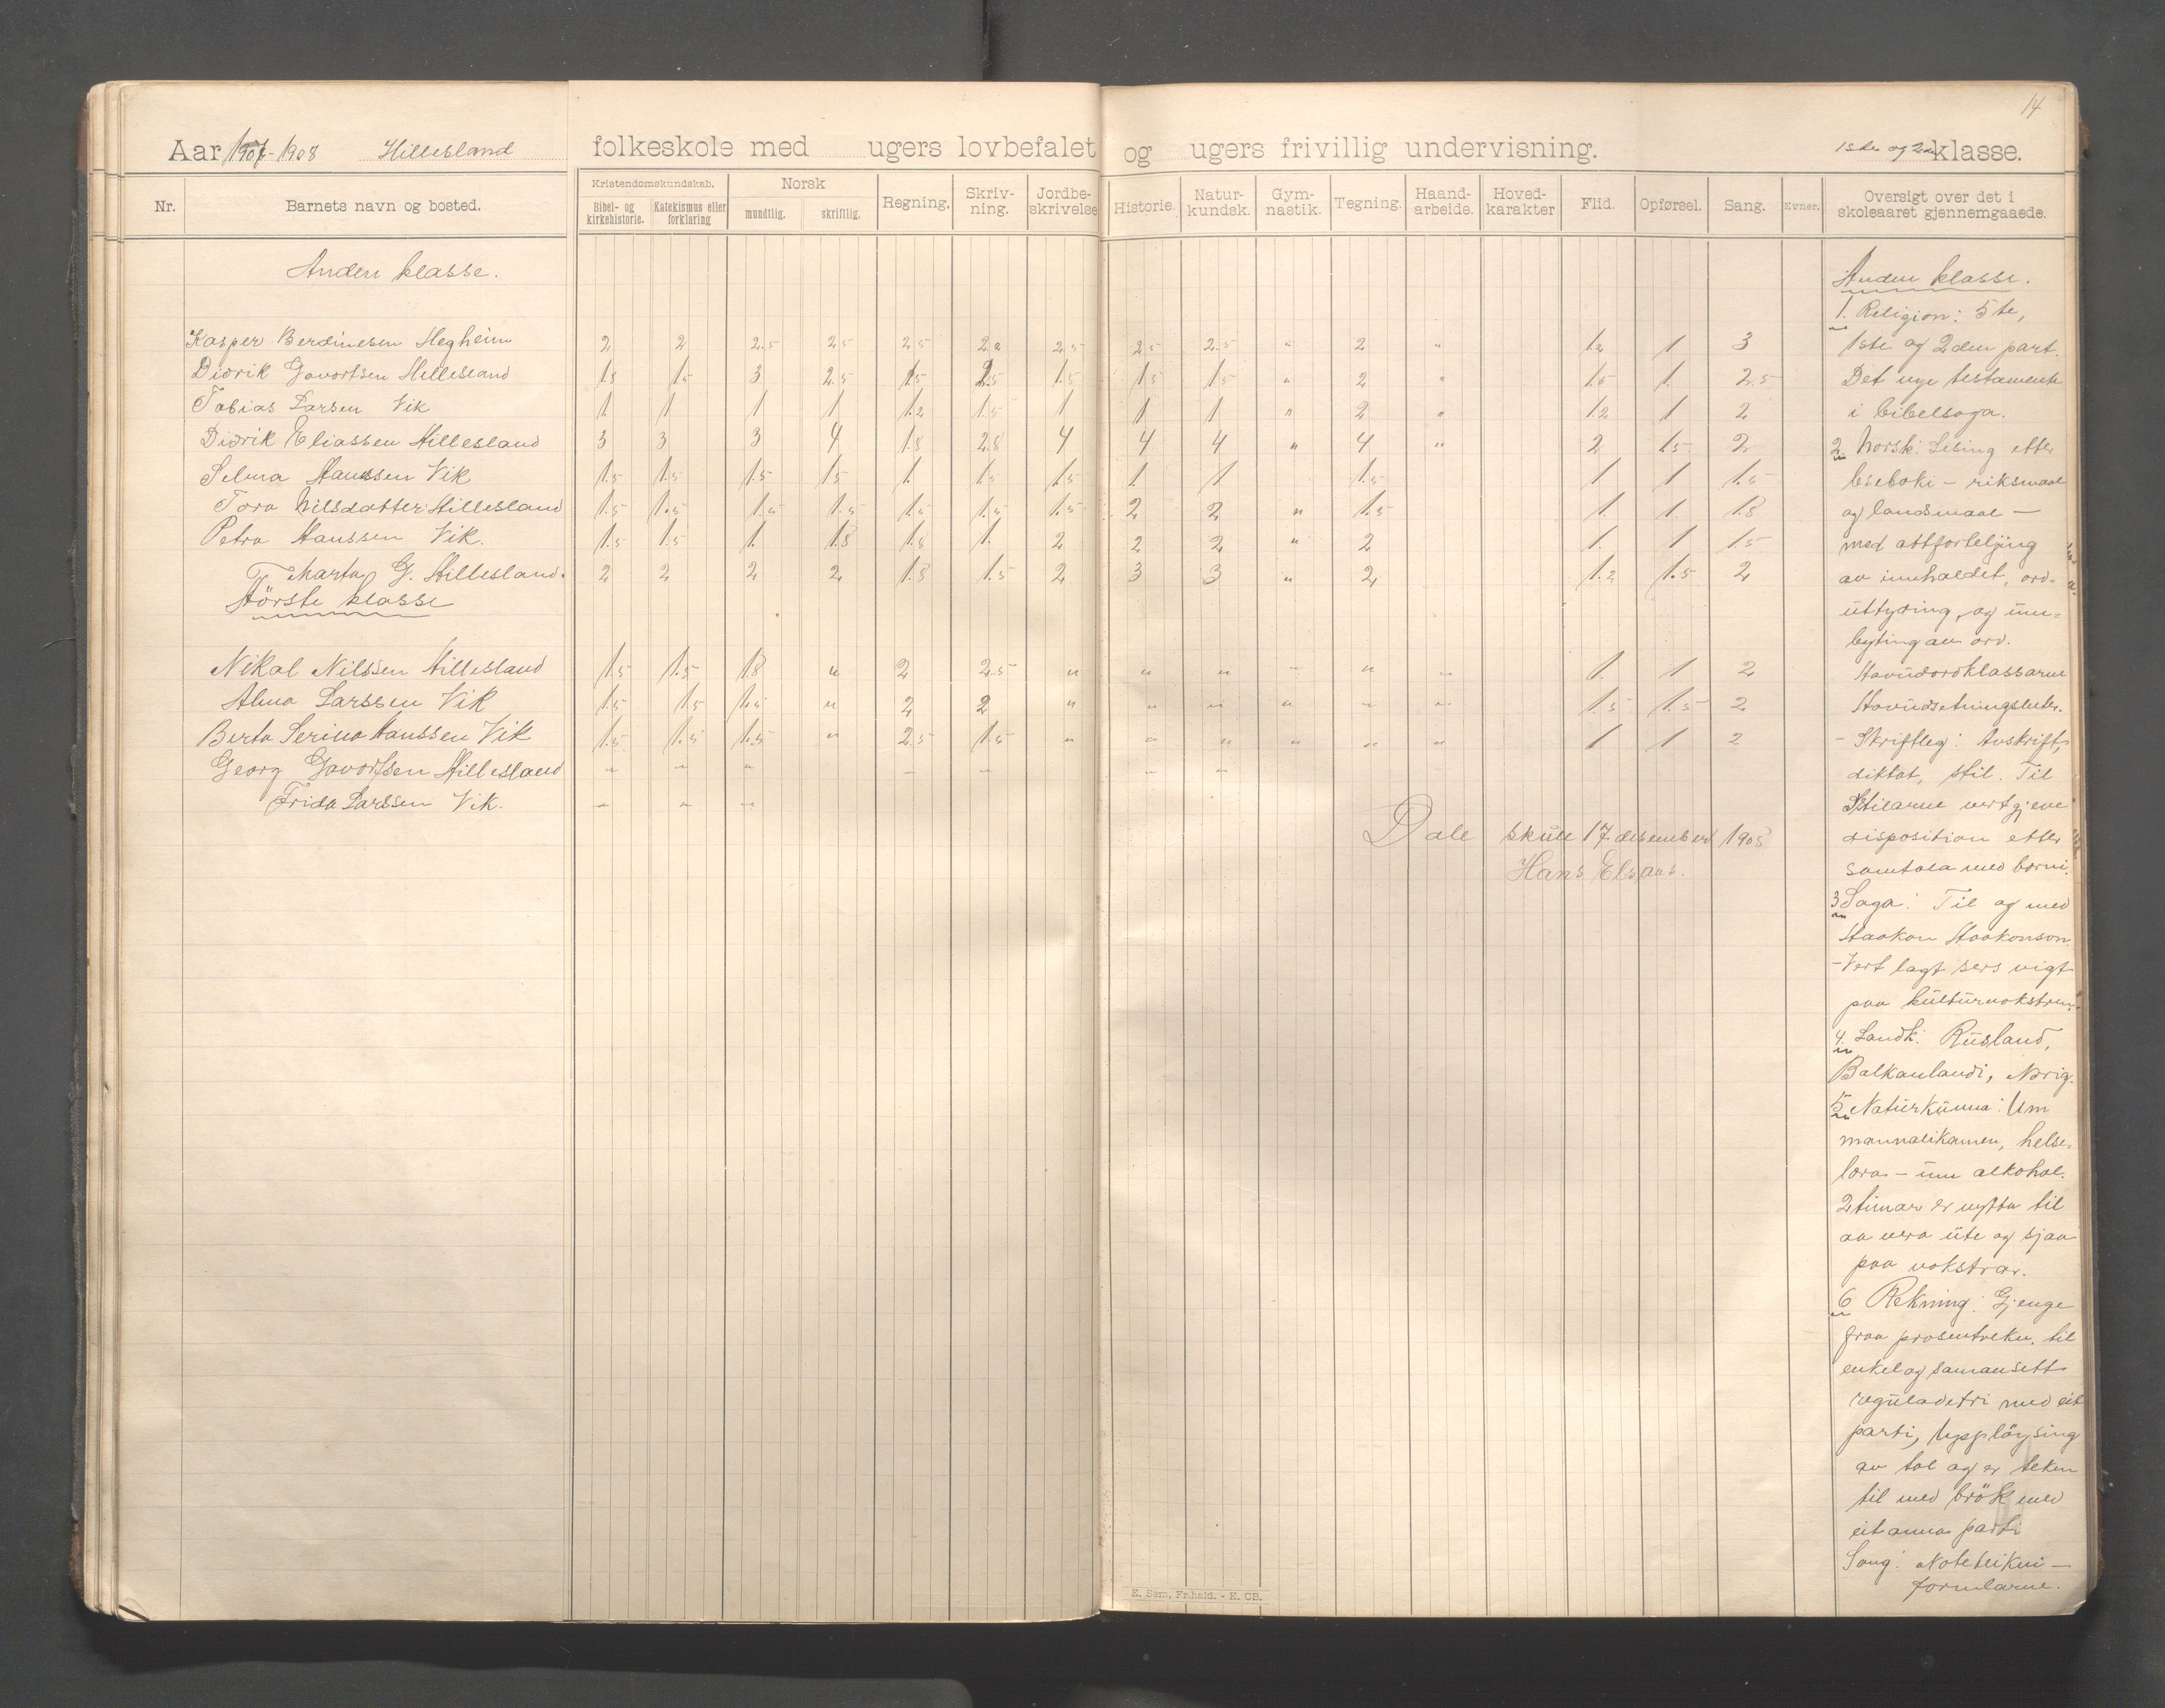 14
Aar 1907-1908 Hillesland folkeskole med ugers lovbefalet og ugers frivillig undervisning. 1ste og 2den klasse.
Nr. Barnets navn og bosted. Kristendomskundskab. Bibel- og kirkehistorie. Katekismus eller forklaring Norsk mundtlig. skriftlig. Regning. Skriv-ning. Jordbe-skrivelse Historie. Natur-kundsk. Gym-nastik. Tegning. Haand-arbeide. Hoved-karakter Flid. Opførsel. Sang. Evner. Oversigt over det i skoleaaret gjennemgaaede.
Anden klasse.
Kasper Berdinesen Hegheim 2 2 2.5 2.5 2.5 2.2 2.5 2.5 2.5 " 2 " 1.2 1 3
Didrik Govertsen Hillesland 1.8 1.5 3 2.5 1.5 2.5 1.5 1.5 1.5 " 2 " 1.5 1. 2.5
Tobias Larsen Vik 1 1 1 1 1.2 1.5 1 1 1 " 2 " 1.2 1 2
Didrik Eliassen Hillesland 3 3 3 4 1.8 2.8 4 4 4 " 4 " 2 1.5 2
Selma Hanssen Vik 1.5 1.5 1.5 1.5 1. 1.5 1.5 1. 1 1.5 1 1 1.5
Tora Nilsdatter Hillesland 1.5 1.5 1.5 1.5 1.5 1.5 1.5 2 2 " 1.5 1. 1. 1.8
Petra Hanssen Vik. 1.5 1.5 1. 1.8 1.8 1. 2 2 2 " 2 1. 1 1.5
Marta G. Hillesland. 2 2 2 2 1.8 1.5 2 3 3 " 2 1.2 1.5 2
Förste klasse
Nikal Nilssen Hillesland 1.5 1.5 1.8 " 2 2.5 " " " " " " 1. 1 2
Alma Larssen Vik 1.5 1.5 1.5 " 2 2 " " " " " " 1.5 1.5 2
Berta Serina Hanssen Vik 1.5 1.5 1.5 " 2.5 1.5 " " " " " " 1 1 2
Georg Govertsen Hillesland " " " " " " "
Frida Larssen Vik. " " "
Dale skule 17 desember 1908
Hans Elsaas.
Anden klasse.
1. Religion: 5te,
1ste og 2den part.
Det nye testamente
i bibelsoga.
2. Norsk: Lesing etter
leseboki - riksmaal
og landsmaal -
med attforteljing
av innhaldet, ord-
uttyding, og um-
byting av ord.
Hovudordklassarne
Hovudsetningsluter.
- Skriftleg: Avskrift,
diktat, stil. Til
Stilarne vert gjeve
disposition etter
samtala med borni.
3 Soga: Til og med
Haakon Haakonson.
- Vert lagt sers vigt
paa kulturvokstren.
4. Landk: Rusland,
Balkanlandi, Norig.
5. Naturkunna: Um
mannalikamen, helse-
læra - um alkohol.
2 timar er nytta til
aa vera ute og sjaa
paa vokstrar.
6 Rekning: Gjenge
fraa prosentrekn. til
enkel og samansett
reguladetri med eit
parti, Upplöysing
av tal og er teken
til med brök med
eit anna parti
Song: Notetrikni -
formlarne.
E. Sem, Fr.hald. - E. CB.